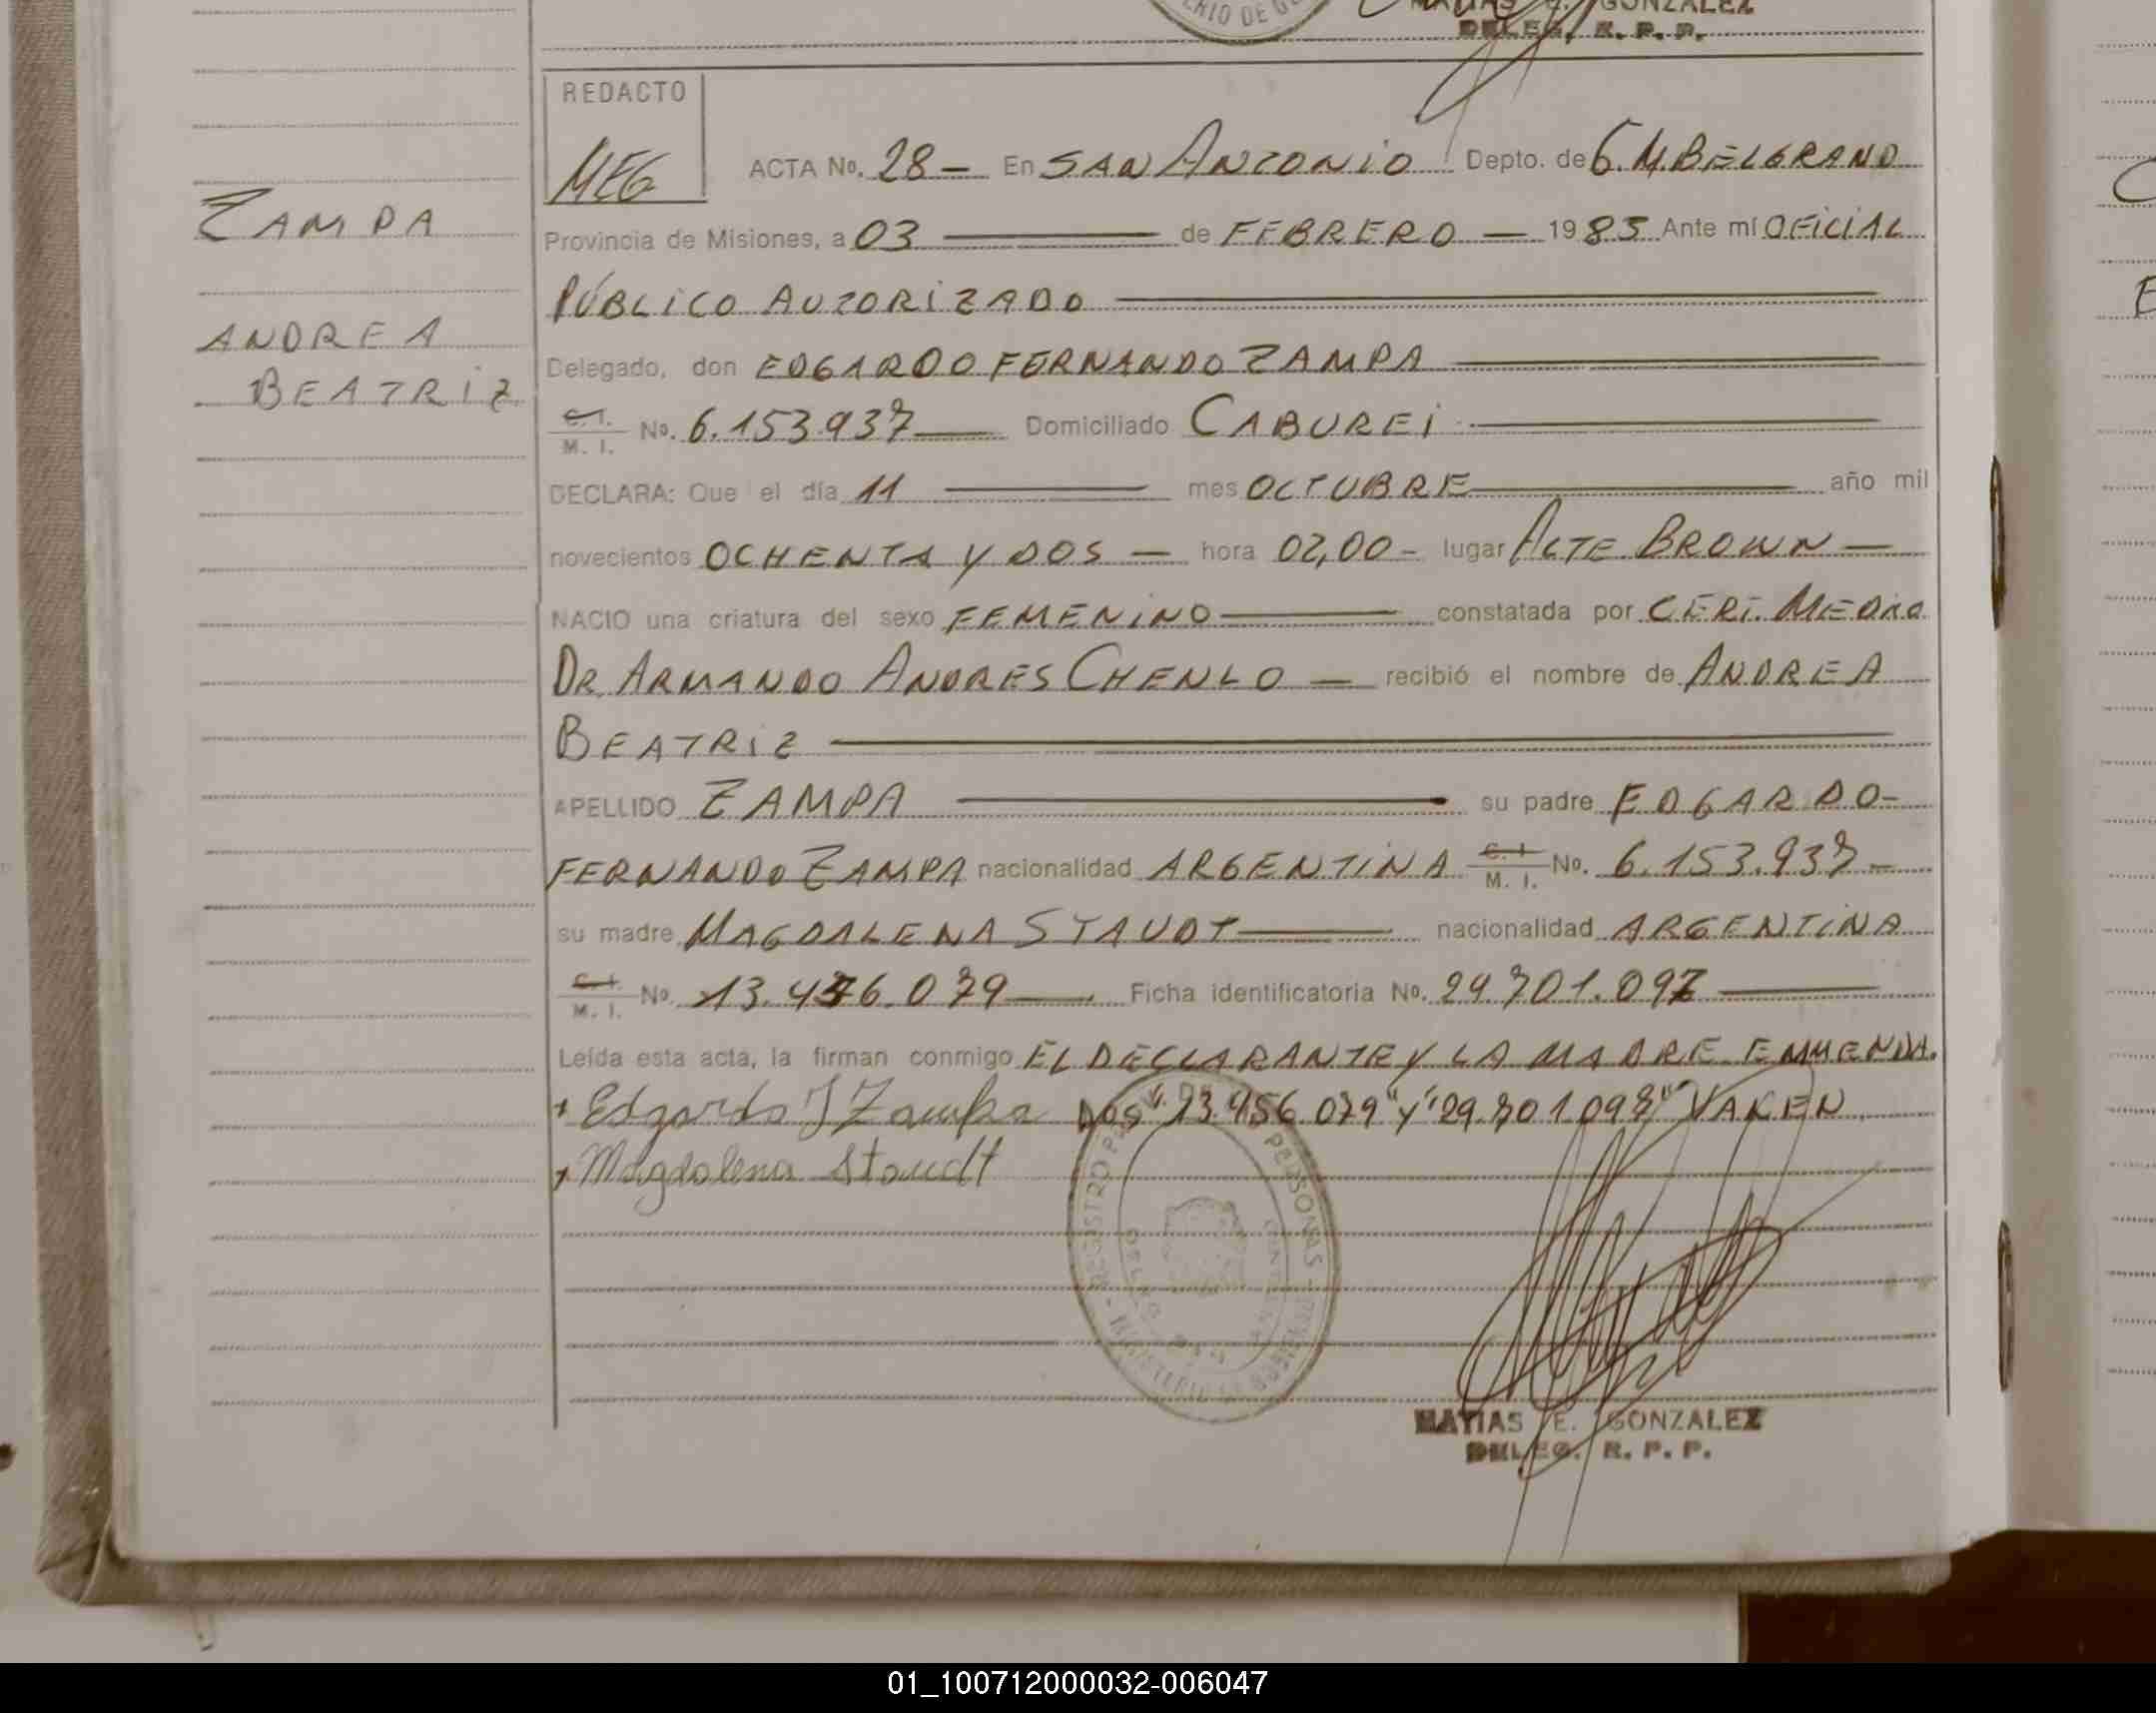 MATIAS E. GONZALEZ
DELEG. R. P. P.
REDACTO
MEG
ACTA No. 28 — En SAN ANTONIO Depto. de G. M. BELGRANO
ZAMPA
Provincia de Misiones, a 03 — de FEBRERO — 1983 Ante mí OFICIAL
PÚBLICO AUTORIZADO
ANDREA
Delegado, don EDGARDO FERNANDO ZAMPA
BEATRIZ
C. I. / M. I. No. 6.153.937 — Domiciliado CABUREI
DECLARA: Que el día 11 — mes OCTUBRE — año mil
novecientos OCHENTA Y DOS — hora 02,00 - lugar ALTE BROWN —
NACIO una criatura del sexo FEMENINO — constatada por CERT. MEDICO
DR. ARMANDO ANDRES CHENLO — recibió el nombre de ANDREA
BEATRIZ
APELLIDO ZAMPA — su padre EDGARDO-
FERNANDO ZAMPA nacionalidad ARGENTINA C. I. / M. I. No. 6.153.937 -
su madre MAGDALENA STAUDT — nacionalidad ARGENTINA
C. I. / M. I. No. 13.456.079 — Ficha identificatoria No. 29.701.097 —
Leída esta acta, la firman conmigo EL DECLARANTE Y LA MADRE EMMENDA.
+ Edgardo F Zampa DOS "13.456.079" y "29.701.097" VALEN
+ Magdalena Staudt
REGISTRO PERSONAS
MATIAS E. GONZALEZ
DELEG. R. P. P.
01_100712000032-006047